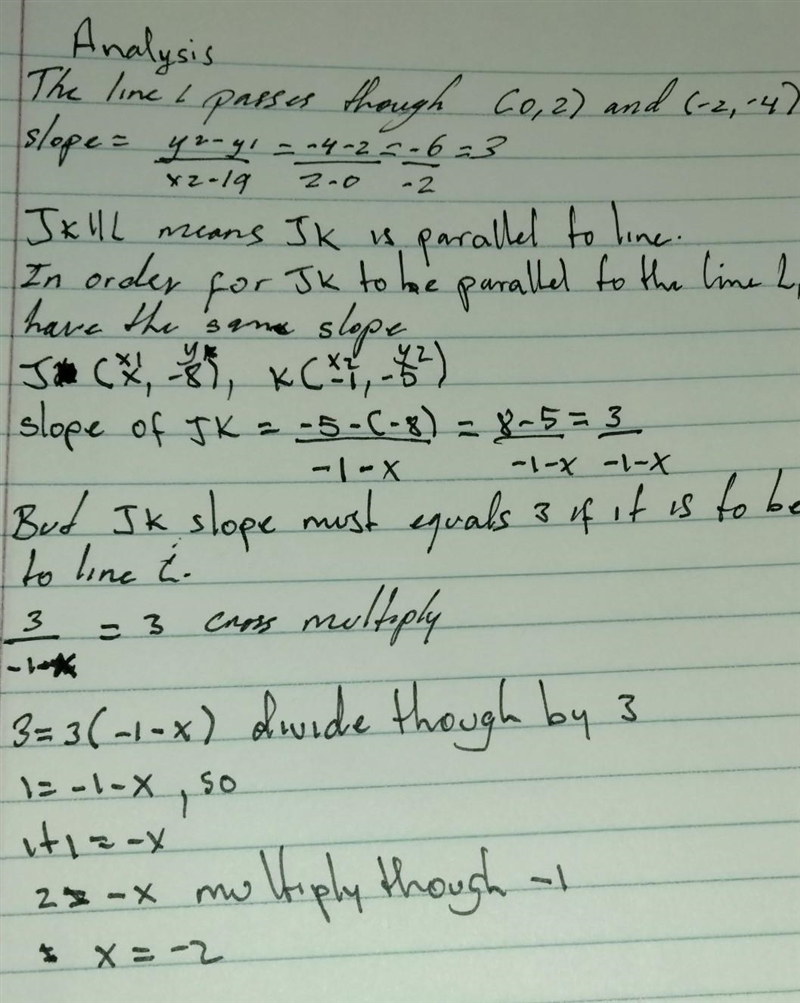 Analysis
The line L passes though (0,2) and (-2,-4)
slope = y2-y1/x2-19 = -4-2/2-0 = -6/-2 = 3
JK || L means JK is parallel to line.
In order for JK to be parallel to the line L,
have the same slope
J (x1 x, y -8), K (x2 -1, y2 -5)
slope of JK = -5-(-8)/-1-x = 8-5/-1-x = 3/-1-x
But JK slope must equals 3 if it is to be
to line L.
3/-1-x = 3 cross multiply
3=3(-1-x) divide though by 3
1=-1-x, so
1+1=-x
2=-x multiply though -1
x = -2